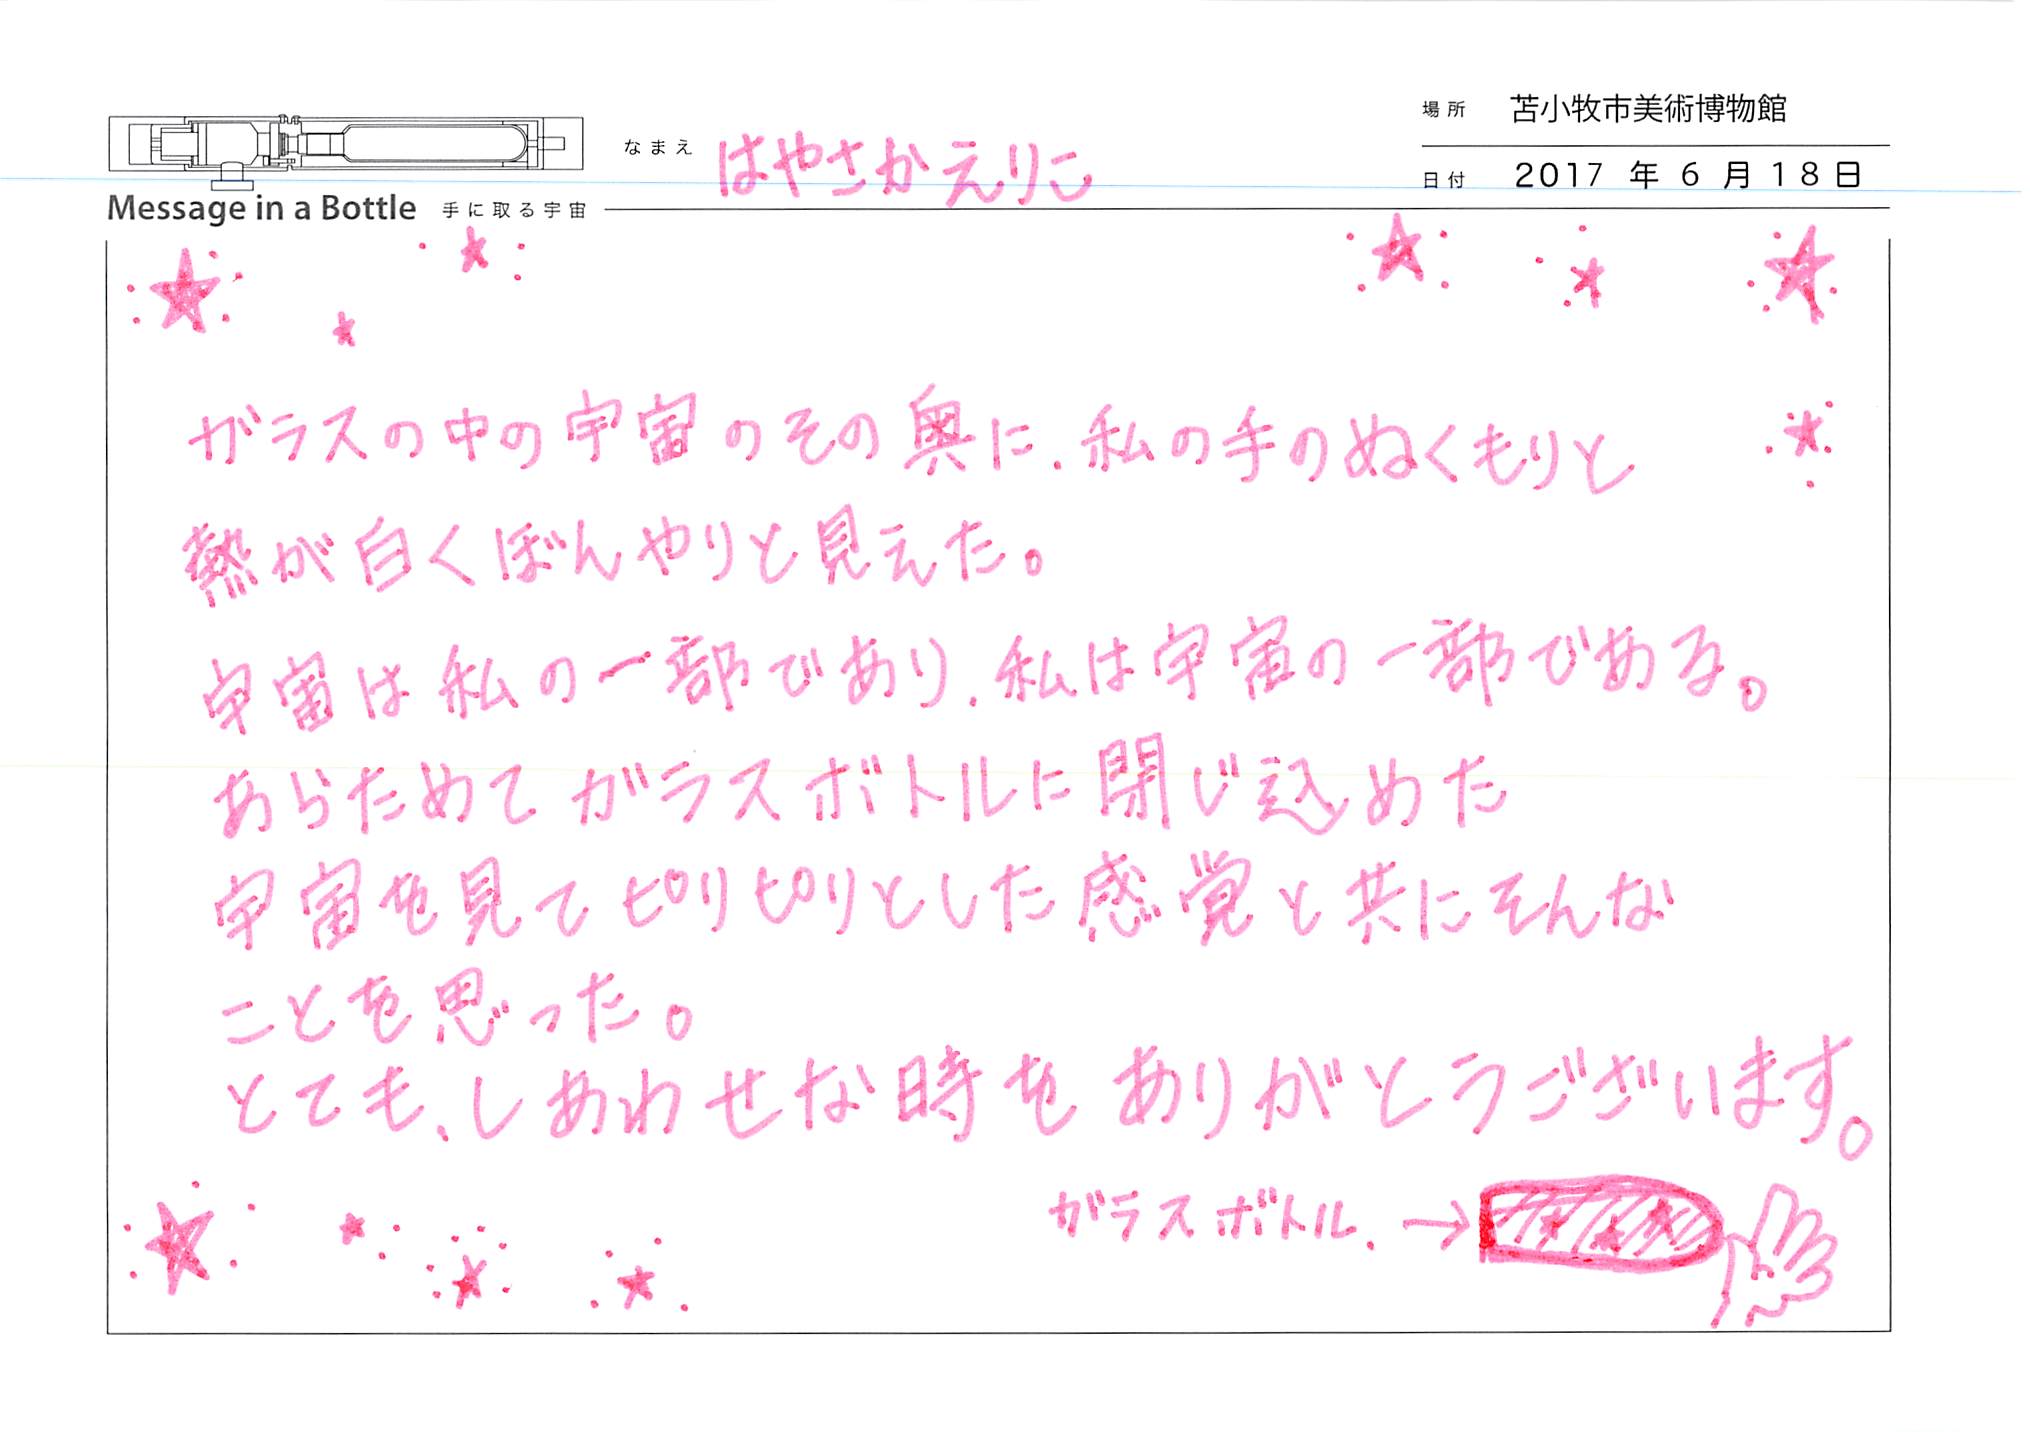 場所 苫小牧市美術博物館
なまえ はやさかえりこ
日付 2017年6月18日
Message in a Bottle 手に取る宇宙
ガラスの中の宇宙のその奥に、私の手のぬくもりと
熱が白くぼんやりと見えた。
宇宙は私の一部であり、私は宇宙の一部である。
あらためてガラスボトルに閉じ込めた
宇宙を見てピリピリとした感覚と共にそんな
ことを思った。
とても、しあわせな時をありがとうございます。
ガラスボトル. →